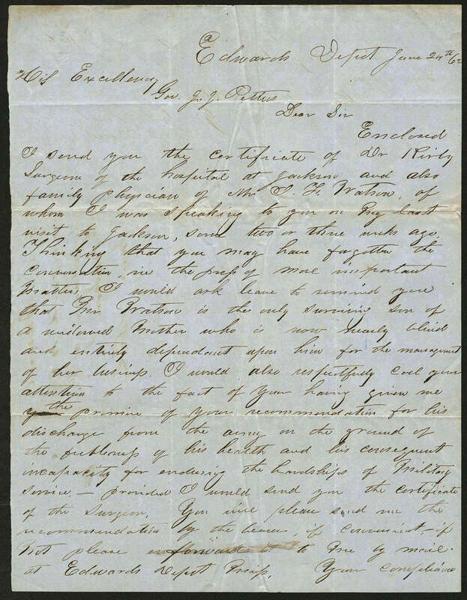 Edwards Depot June 24th 62
His Excellency
Gov. J. J. Pettus
Dear Sir
Enclosed
I send you the certificate of Dr Kirby
Surgeon of the hospital at Jackson and also
family physician of Mr S. F. Watson, of
whom I was speaking to you on my last
visit to Jackson, some two or three weeks ago.
Thinking that you may have forgotten the
conversation in the press of more important
matters, I would ask leave to remind you
that Mr Watson is the only surviving son of
a widowed mother who is now nearly blind
and entirely dependant upon him for the management
of her business. I would also respectfully call your
attention to the fact of your having given me
the promise of your recommendation for his
discharge from the army on the ground of
the feebleness of his health and his consequent
incapacity for enduring the hardships of Military
service — provided I would send you the certificate
of the Surgeon. You will please send me the
recommendation by the bearer if convenient, if
not please forward it to me by mail
at Edwards Depot Miss. Your compliance